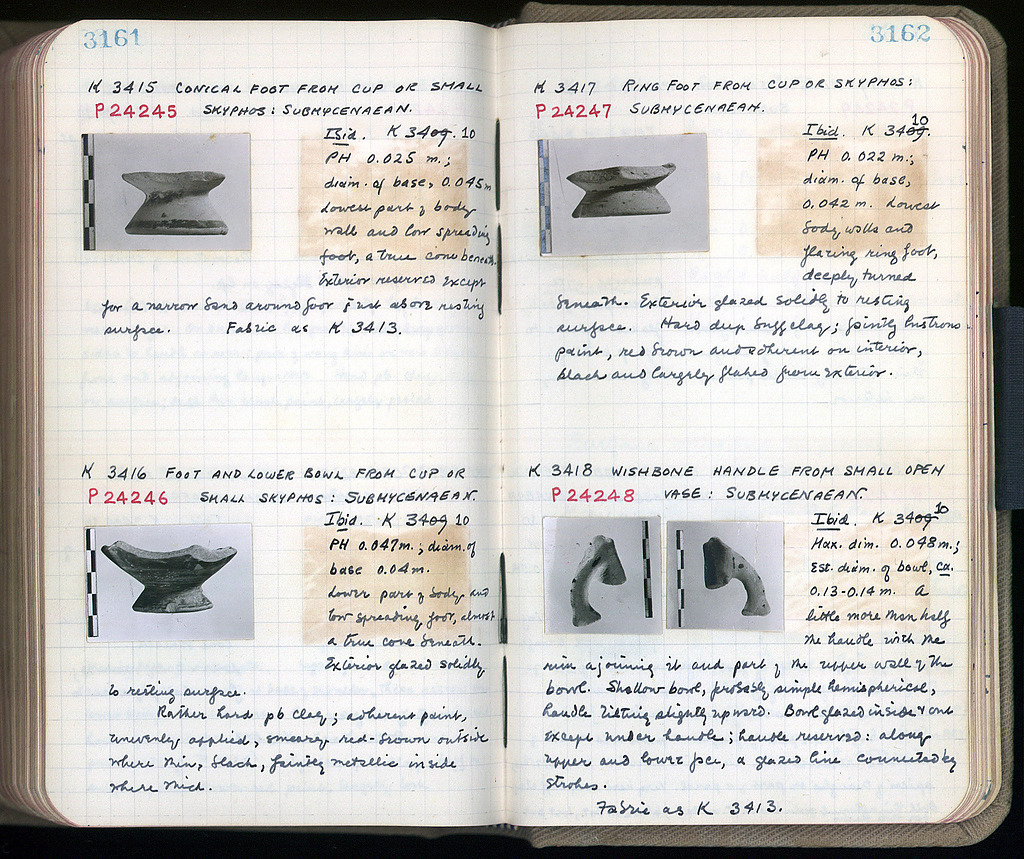 3161
K 3415 CONICAL FOOT FROM CUP OR SMALL
P24245 SKYPHOS: SUBMYCENAEAN.
Ibid. K 3409. 10
PH 0.025 m.;
diam. of base, 0.045m
Lowest part of body
wall and low spreading
foot, a true cone beneath.
Exterior reserved except
for a narrow band around foot just above resting
surface. Fabric as K 3413.
K 3416 FOOT AND LOWER BOWL FROM CUP OR
P24246 SMALL SKYPHOS: SUBMYCENAEAN.
Ibid. K 3409 10
PH 0.047m.; diam. of
base 0.04 m.
Lower part of body and
low spreading foot, almost
a true cone beneath.
Exterior glazed solidly
to resting surface.
Rather hard pb clay; adherent paint,
unevenly applied, smeary red-brown outside
where thin, black, faintly metallic inside
where thick.
3162
K 3417 RING FOOT FROM CUP OR SKYPHOS:
P24247 SUBMYCENAEAN.
Ibid. K 3409. 10
PH 0.022 m.;
diam. of base,
0.042 m. Lowest
body walls and
flaring ring foot,
deeply turned
beneath. Exterior glazed solidly to resting
surface. Hard deep buff clay; faintly lustrous
paint, red brown and adherent on interior,
black and largely flaked from exterior.
K 3418 WISHBONE HANDLE FROM SMALL OPEN
P24248 VASE: SUBMYCENAEAN.
Ibid. K 3409 10
Max. dim. 0.048m.;
Est. diam. of bowl, ca.
0.13-0.14 m. A
little more than half
the handle with the
rim ajoining it and part of the upper wall of the
bowl. Shallow bowl, probably simple hemispherical,
handle tilting slightly upward. Bowl glazed inside & out
except under handle; handle reserved: along
upper and lower face, a glazed line connected by
strokes.
Fabric as K 3413.